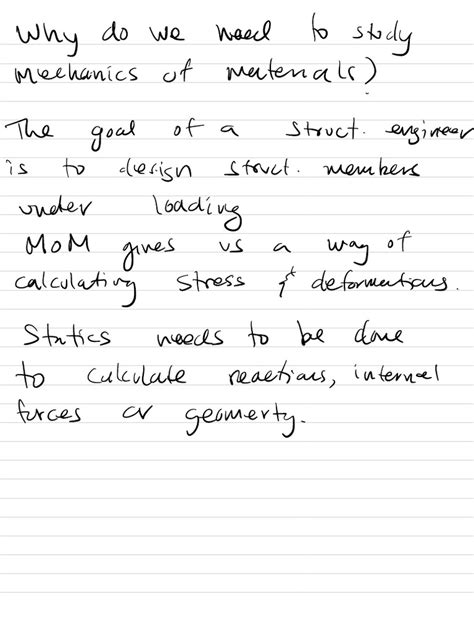 Why do we need to study
mechanics of materials?
The goal of a struct. engineer
is to design struct. members
under loading
MoM gives us a way of
calculating stress & deformations.
Statics needs to be done
to calculate reactions, internal
forces or geomerty.